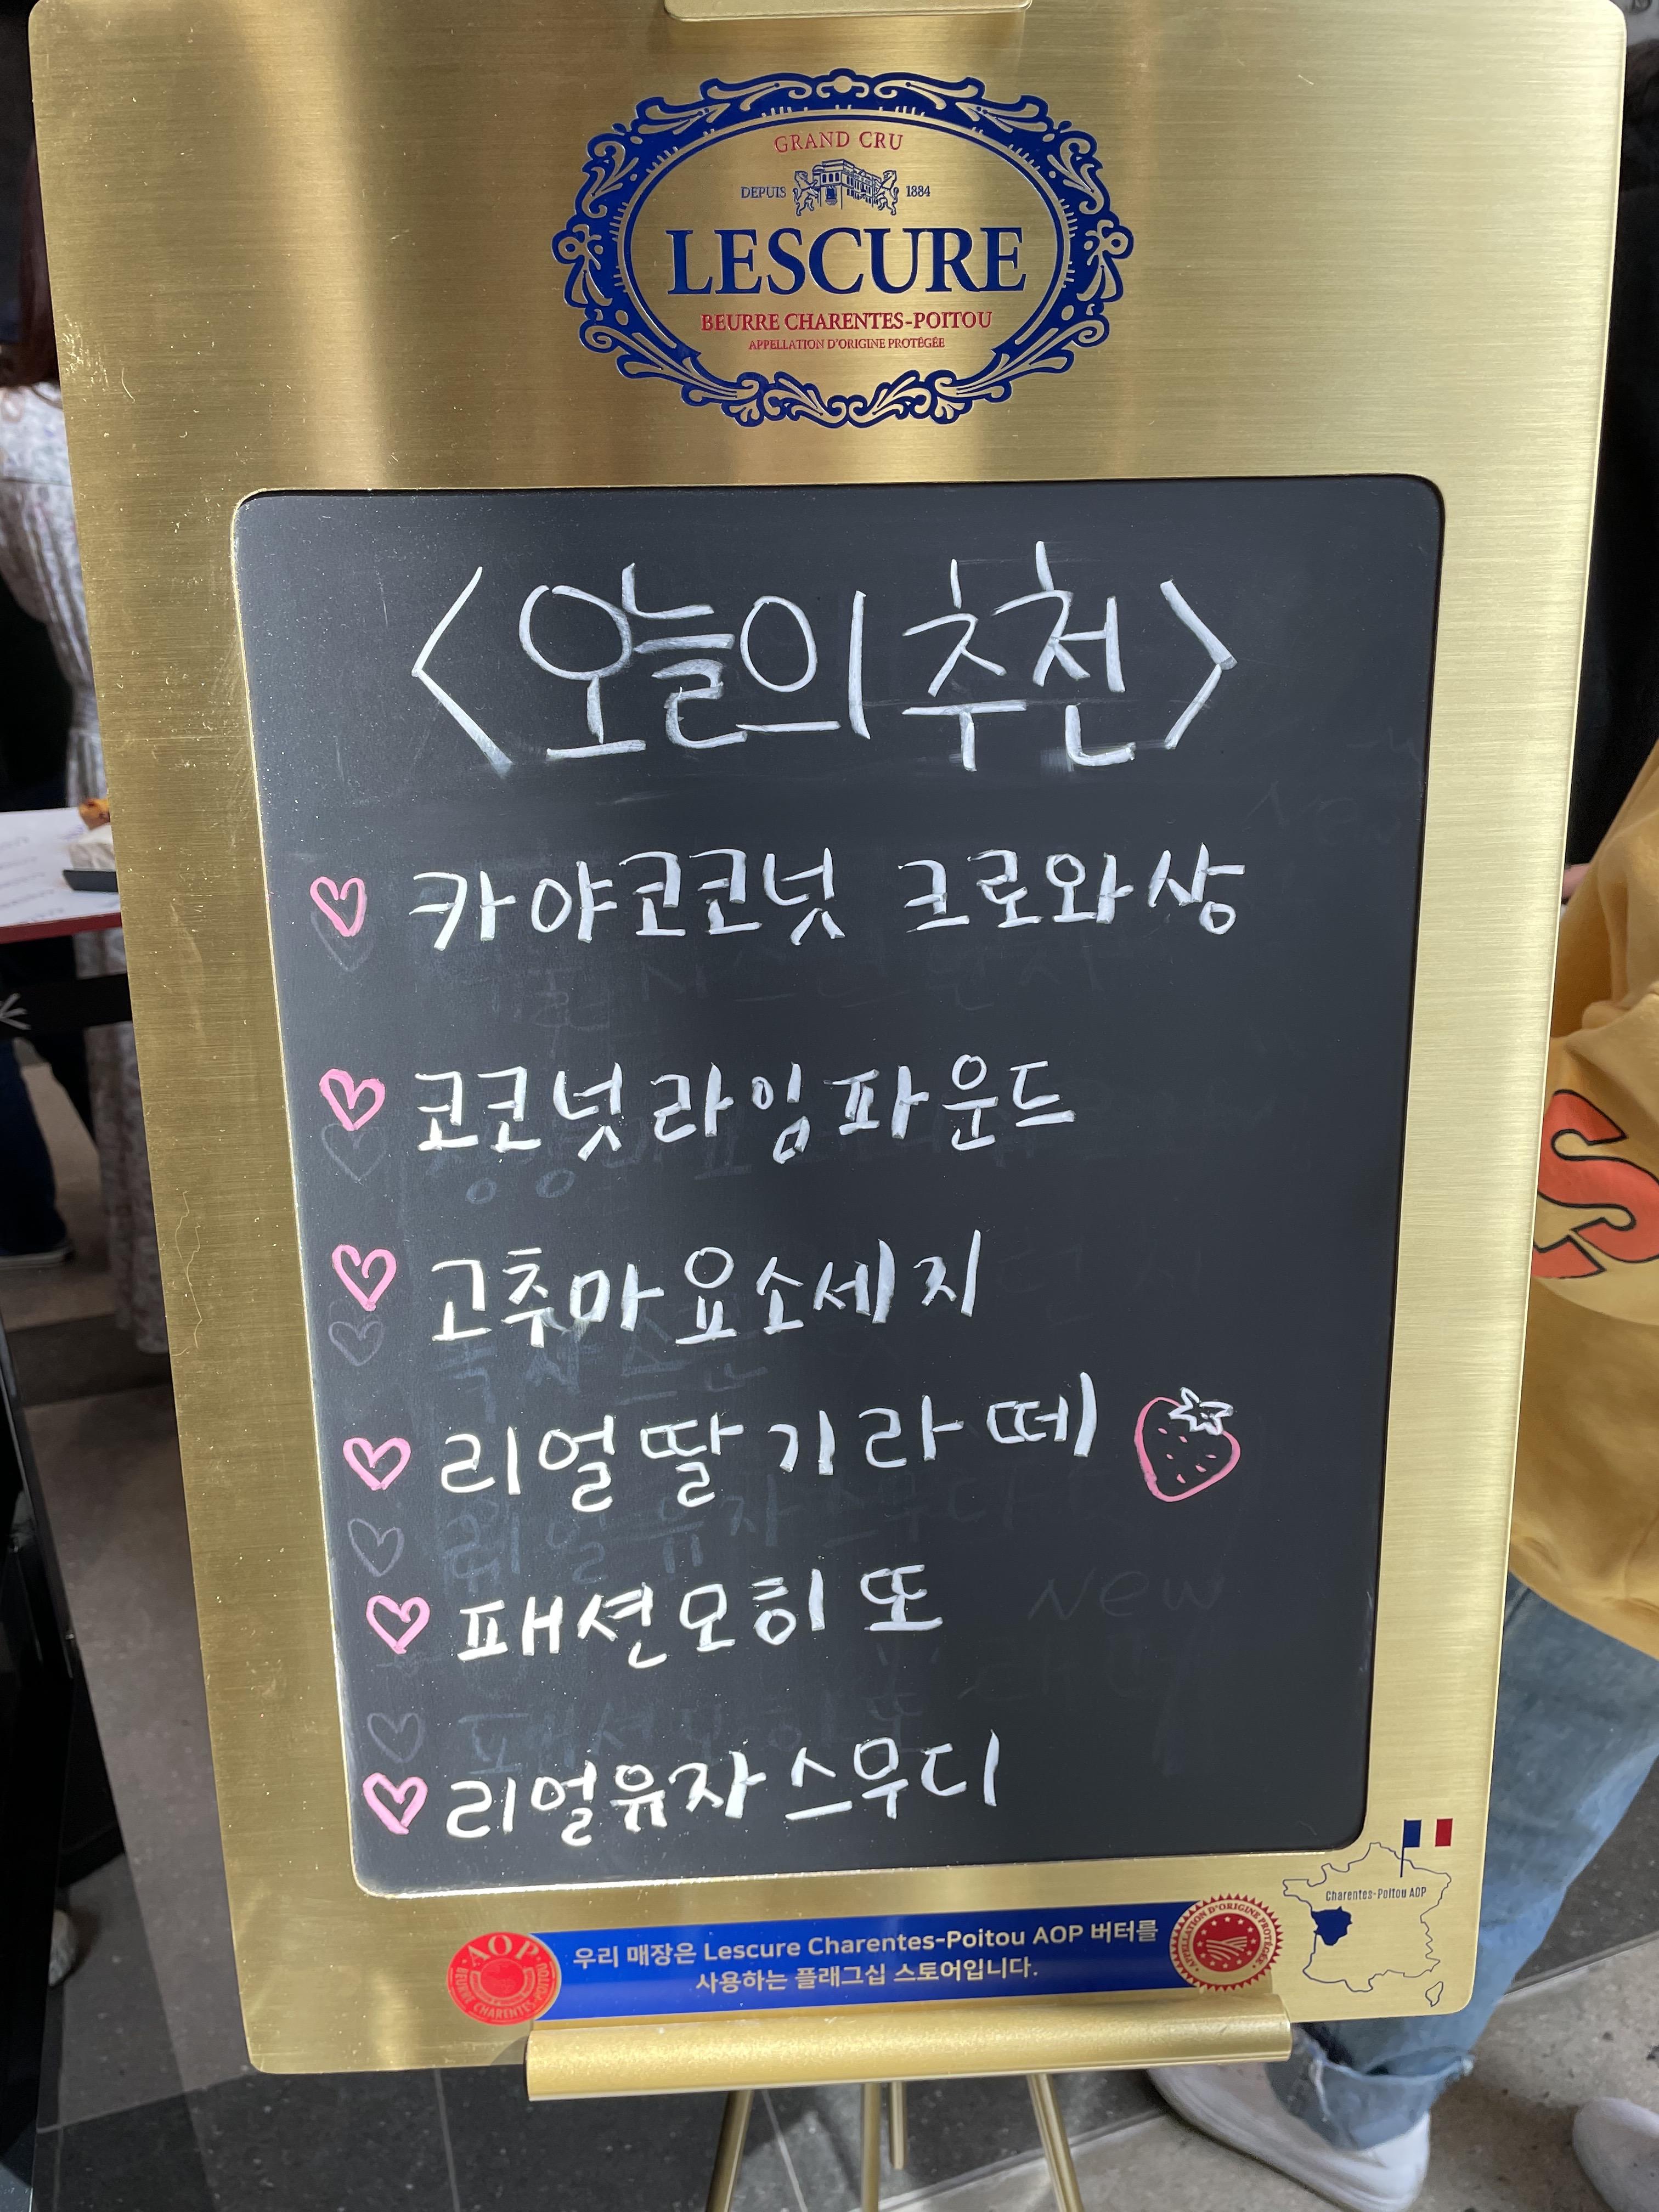 GRAND CRU
DEPUIS 1884
LESCURE
BEURRE CHARENTES-POITOU
APPELLATION D'ORIGINE PROTÉGÉE
<오늘의 추천>
♡ 카야코코넛 크로와상
♡ 코코넛라임파운드
♡ 고추마요소세지
♡ 리얼딸기라떼
♡ 패션모히또
New
♡ 리얼유자스무디
Charentes-Poitou AOP
우리 매장은 Lescure Charentes-Poitou AOP 버터를
사용하는 플래그십 스토어입니다.
AOP
BEURRE CHARENTES-POITOU
APPELLATION D'ORIGINE PROTÉGÉE